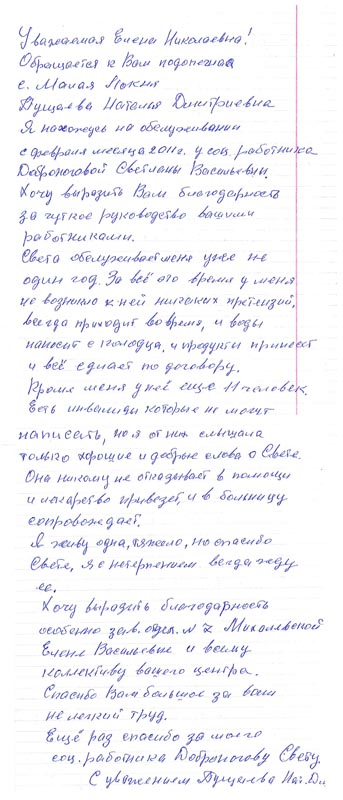 Уважаемая Елена Николаевна!
Обращается к Вам подопечная
с. Малая Локня
Пущаева Наталья Дмитриевна
Я нахожусь на обслуживании
с февраля месяца 2011г. у соц. работника
Доброноговой Светланы Васильевны.
Хочу выразить Вам благодарность
за чуткое руководство вашими
работниками.
Света обслуживает меня уже не
один год. За всё это время у меня
не возникло к ней никаких претензий,
всегда приходит вовремя, и воды
наносит с колодца, и продукты принесёт
и всё сделает по договору.
Кроме меня у неё ещё 11 человек.
Есть инвалиды которые не могут
написать, но я от них слышала
только хорошие и добрые слова о Свете.
Она никому не отказывает в помощи
и лекарство привезёт, и в больницу
сопровождает.
Я живу одна, тяжело, но спасибо
Свете, я с нетерпением всегда жду
её.
Хочу выразить благодарность
особенно зав. отдел. №7 Михалевской
Елене Васильевне и всему
коллективу вашего центра.
Спасибо Вам большое за ваш
не легкий труд.
Ещё раз спасибо за моего
соц. работника Доброногову Свету.
С уважением Пущаева Нат. Дм.